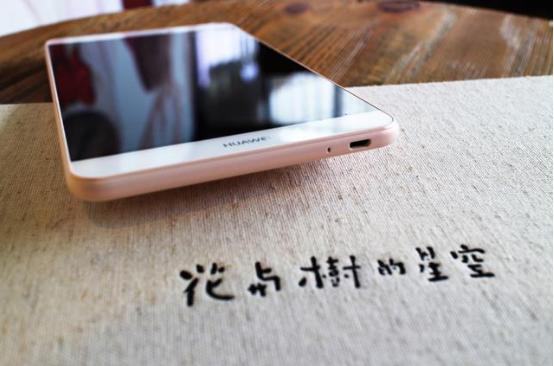 HUAWEI
花与樹的星空